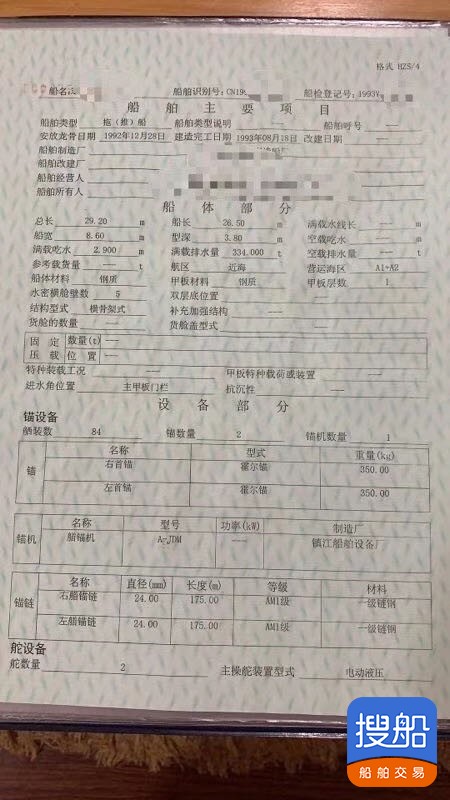 格式 HZS/4
船名 船舶识别号：CN19 船检登记号：1993Y
船 舶 主 要 项 目
船舶类型 拖（推）船 船舶类型说明 —— 船舶呼号 ——
安放龙骨日期 1992年12月28日 建造完工日期 1993年08月18日 改建日期
船舶制造厂
船舶改建厂
船舶经营人
船舶所有人
船 体 部 分
总长 29.20 m 船长 26.50 m 满载水线长 —— m
船宽 8.60 m 型深 3.80 m 空载吃水 —— m
满载吃水 2.900 m 满载排水量 334.000 t 空载排水量 —— t
参考载货量 —— t 航区 近海 营运海区 A1+A2
船体材料 钢质 甲板材料 钢质 甲板层数 1
水密横舱壁数 5 双层底位置 ——
结构型式 横骨架式 补充加强结构 ——
货舱的数量 —— 货舱盖型式 ——
固 定 数量(t) ——
压 载 位置 ——
特种装载工况 —— 甲板特种载荷或装置 ——
进水角位置 主甲板门栏 抗沉性 ——
设 备 部 分
锚设备
舾装数 84 锚数量 2 锚机数量 1
锚 名称 型式 重量(kg)
右首锚 霍尔锚 350.00
左首锚 霍尔锚 350.00
锚机 名称 型号 功率(kW) 制造厂
艏锚机 A-JDM —— 镇江船舶设备厂
锚链 名称 直径(mm) 长度(m) 等级 材料
右艏锚链 24.00 175.00 AM1级 一级链钢
左艏锚链 24.00 175.00 AM1级 一级链钢
舵设备
舵数量 2 主操舵装置型式 电动液压
搜船
船舶交易